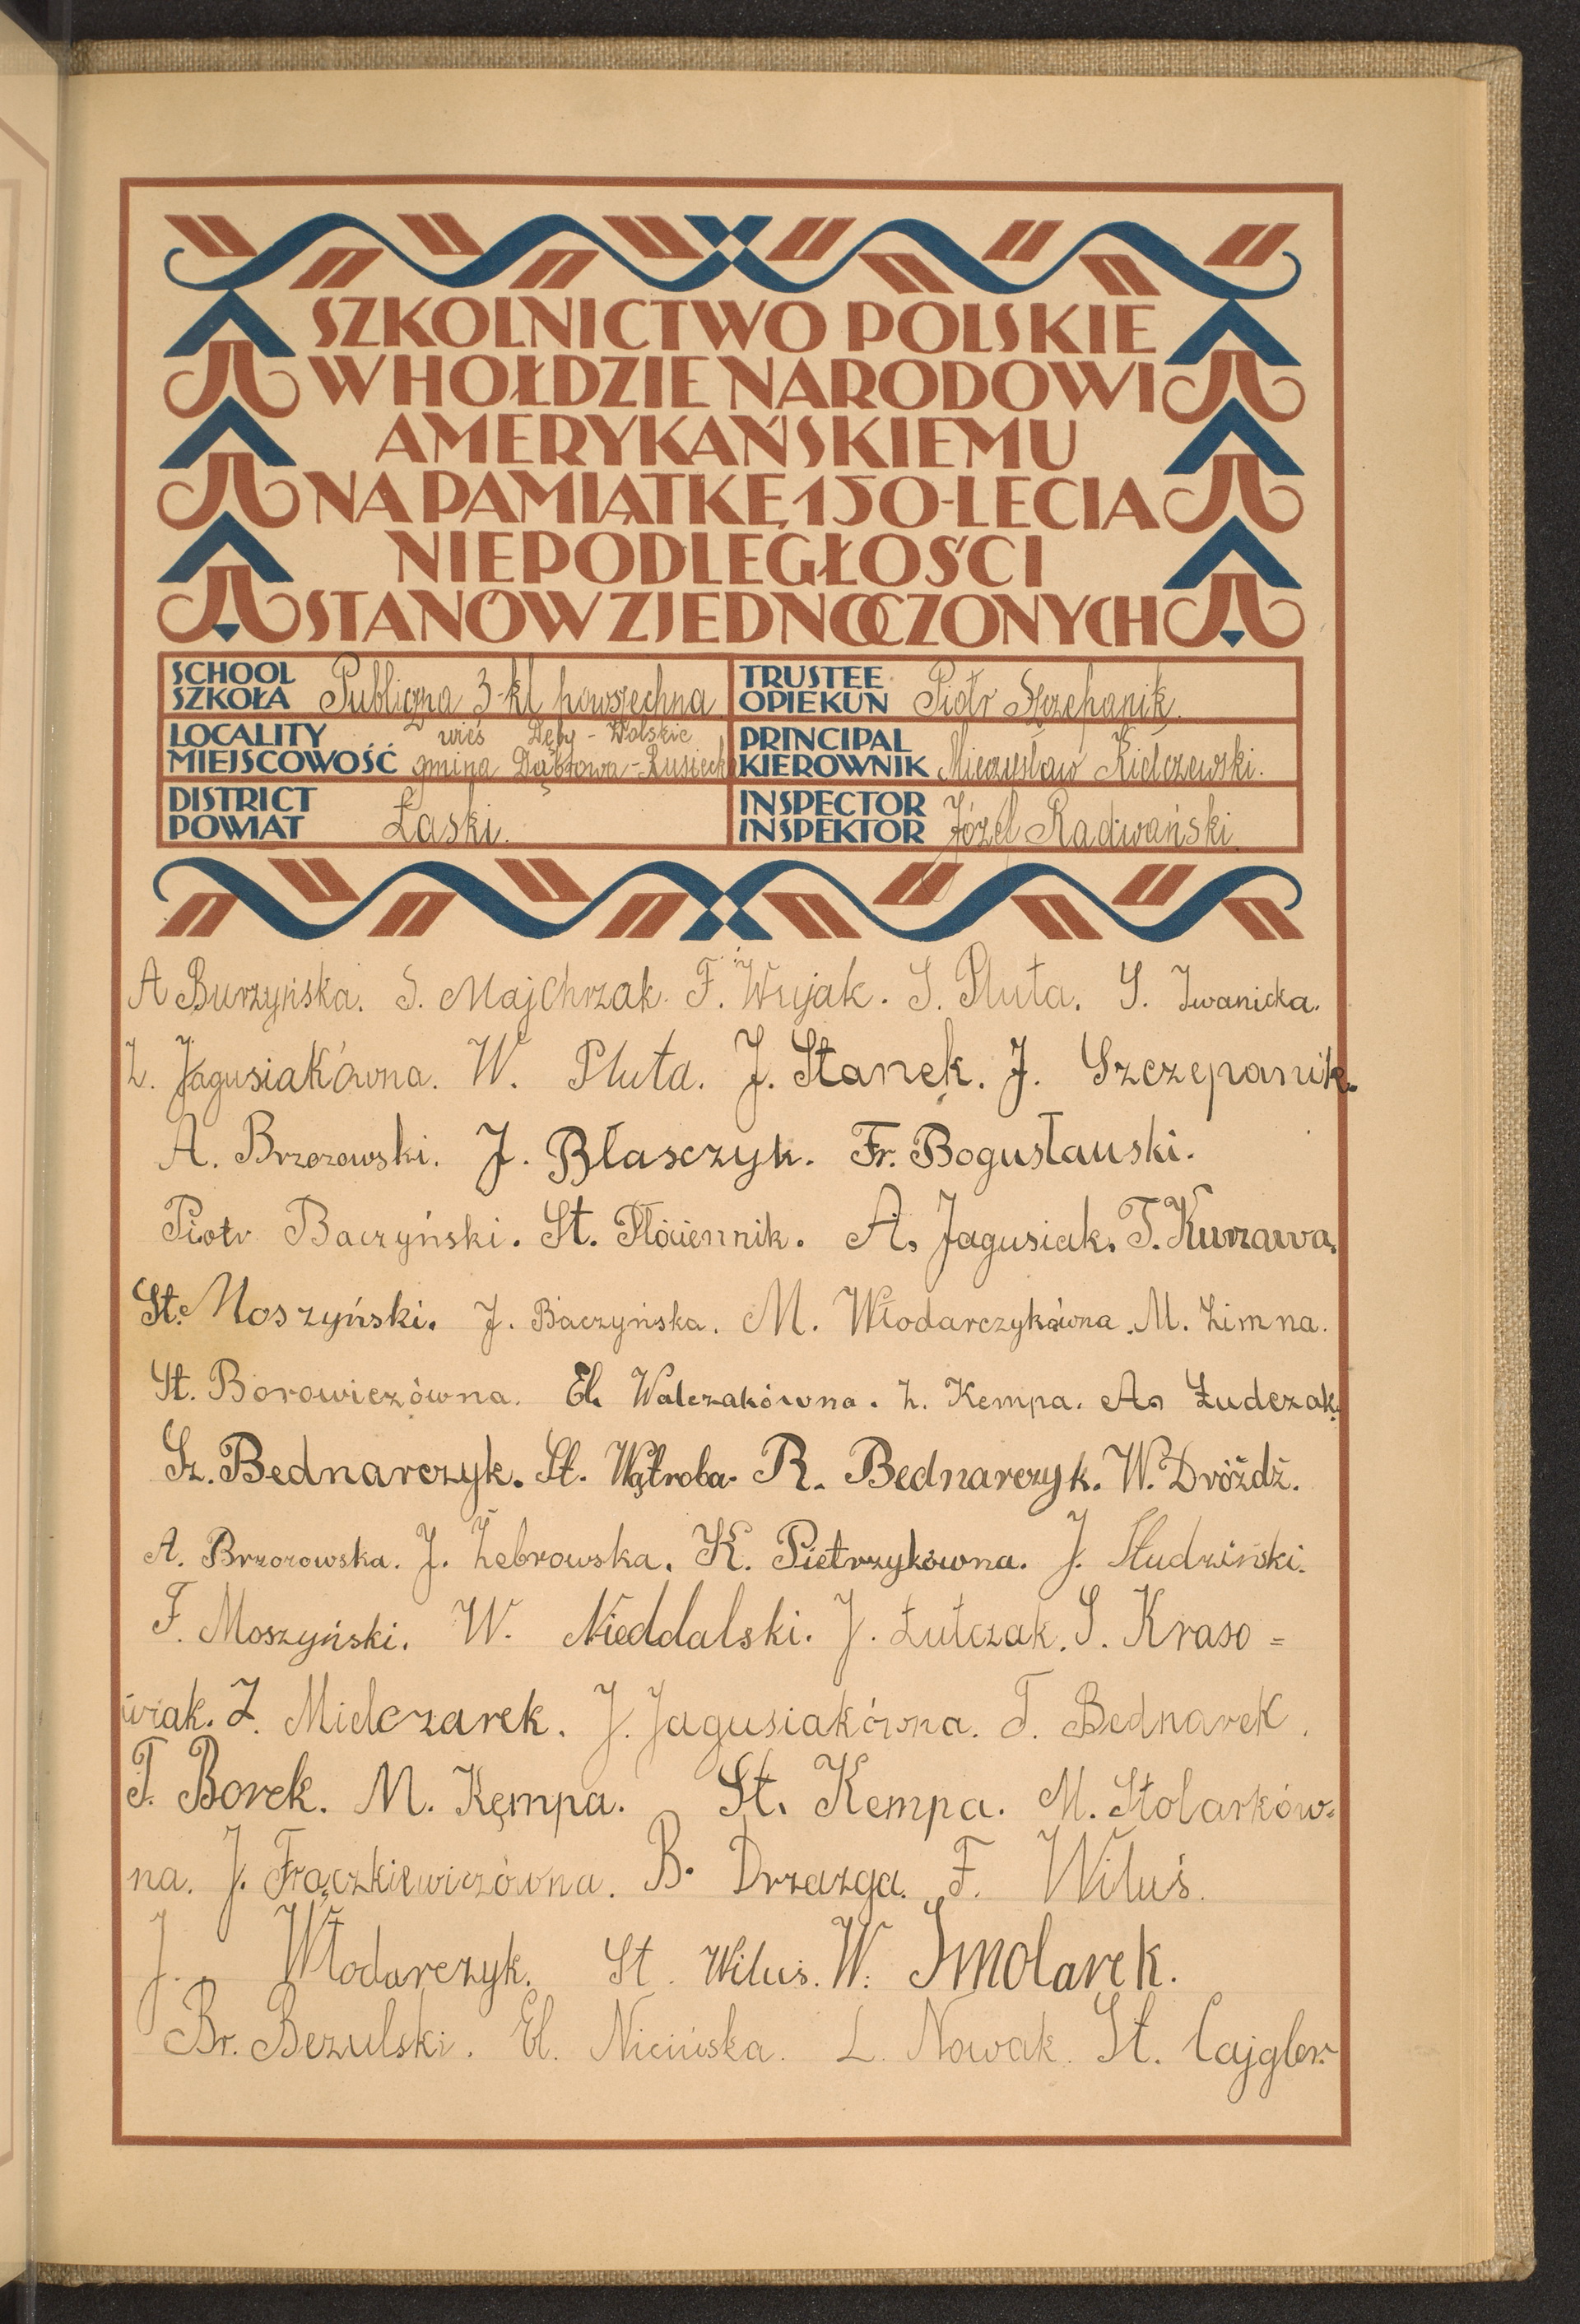 SZKOLNICTWO POLSKIE
W HOŁDZIE NARODOWI
AMERYKAŃSKIEMU
NA PAMIĄTKĘ 150-LECIA
NIEPODLEGŁOŚCI
STANÓW ZJEDNOCZONYCH
SCHOOL
SZKOŁA Publiczna 3-kl powszechna
TRUSTEE
OPIEKUN Piotr Szczepanik.
LOCALITY wieś Dęby-Wolskie
MIEJSCOWOŚĆ gmina Dąbrowa-Rusiecka
PRINCIPAL
KIEROWNIK Mieczysław Kiełczewski.
DISTRICT
POWIAT Łaski.
INSPECTOR
INSPEKTOR Józef Radwański.
A Burzyńska. S. Majchrzak. F. Wujak. S. Pluta. S. Iwanicka.
Z. Jagusiakówna. W. Pluta. J. Stanek. J. Szczepanik.
A. Brzozowski. J. Błasczyk. Fr. Bogusławski.
Piotr Baczyński. St. Płóciennik. A. Jagusiak. T. Kurzawa.
St. Moszyński. J. Baczyńska. M. Włodarczykówna. M. Zimna.
St. Borowiczówna. El. Walczakówna. Z. Kempa. A. Łudczak.
Sz. Bednarczyk. St. Wątroba. R. Bednarczyk. W. Dróżdż.
A. Brzozowska. J. Żebrowska. K. Pietrzykówna. J. Studziński.
F. Moszyński. W. Nieddalski. J. Łutczak. S. Kraso=
wiak. Z. Mielczarek. J. Jagusiakówna. T. Bednarek.
T. Borek. M. Kęmpa. St. Kempa. M. Stolarków=
na. J. Frączkiewiczówna. B. Drzazga. F. Wiluś.
J. Włodarczyk. St. Wiluś. W. Smolarek.
Br. Bezulski. El. Nicińska. L. Nowak. St. Cajgler.